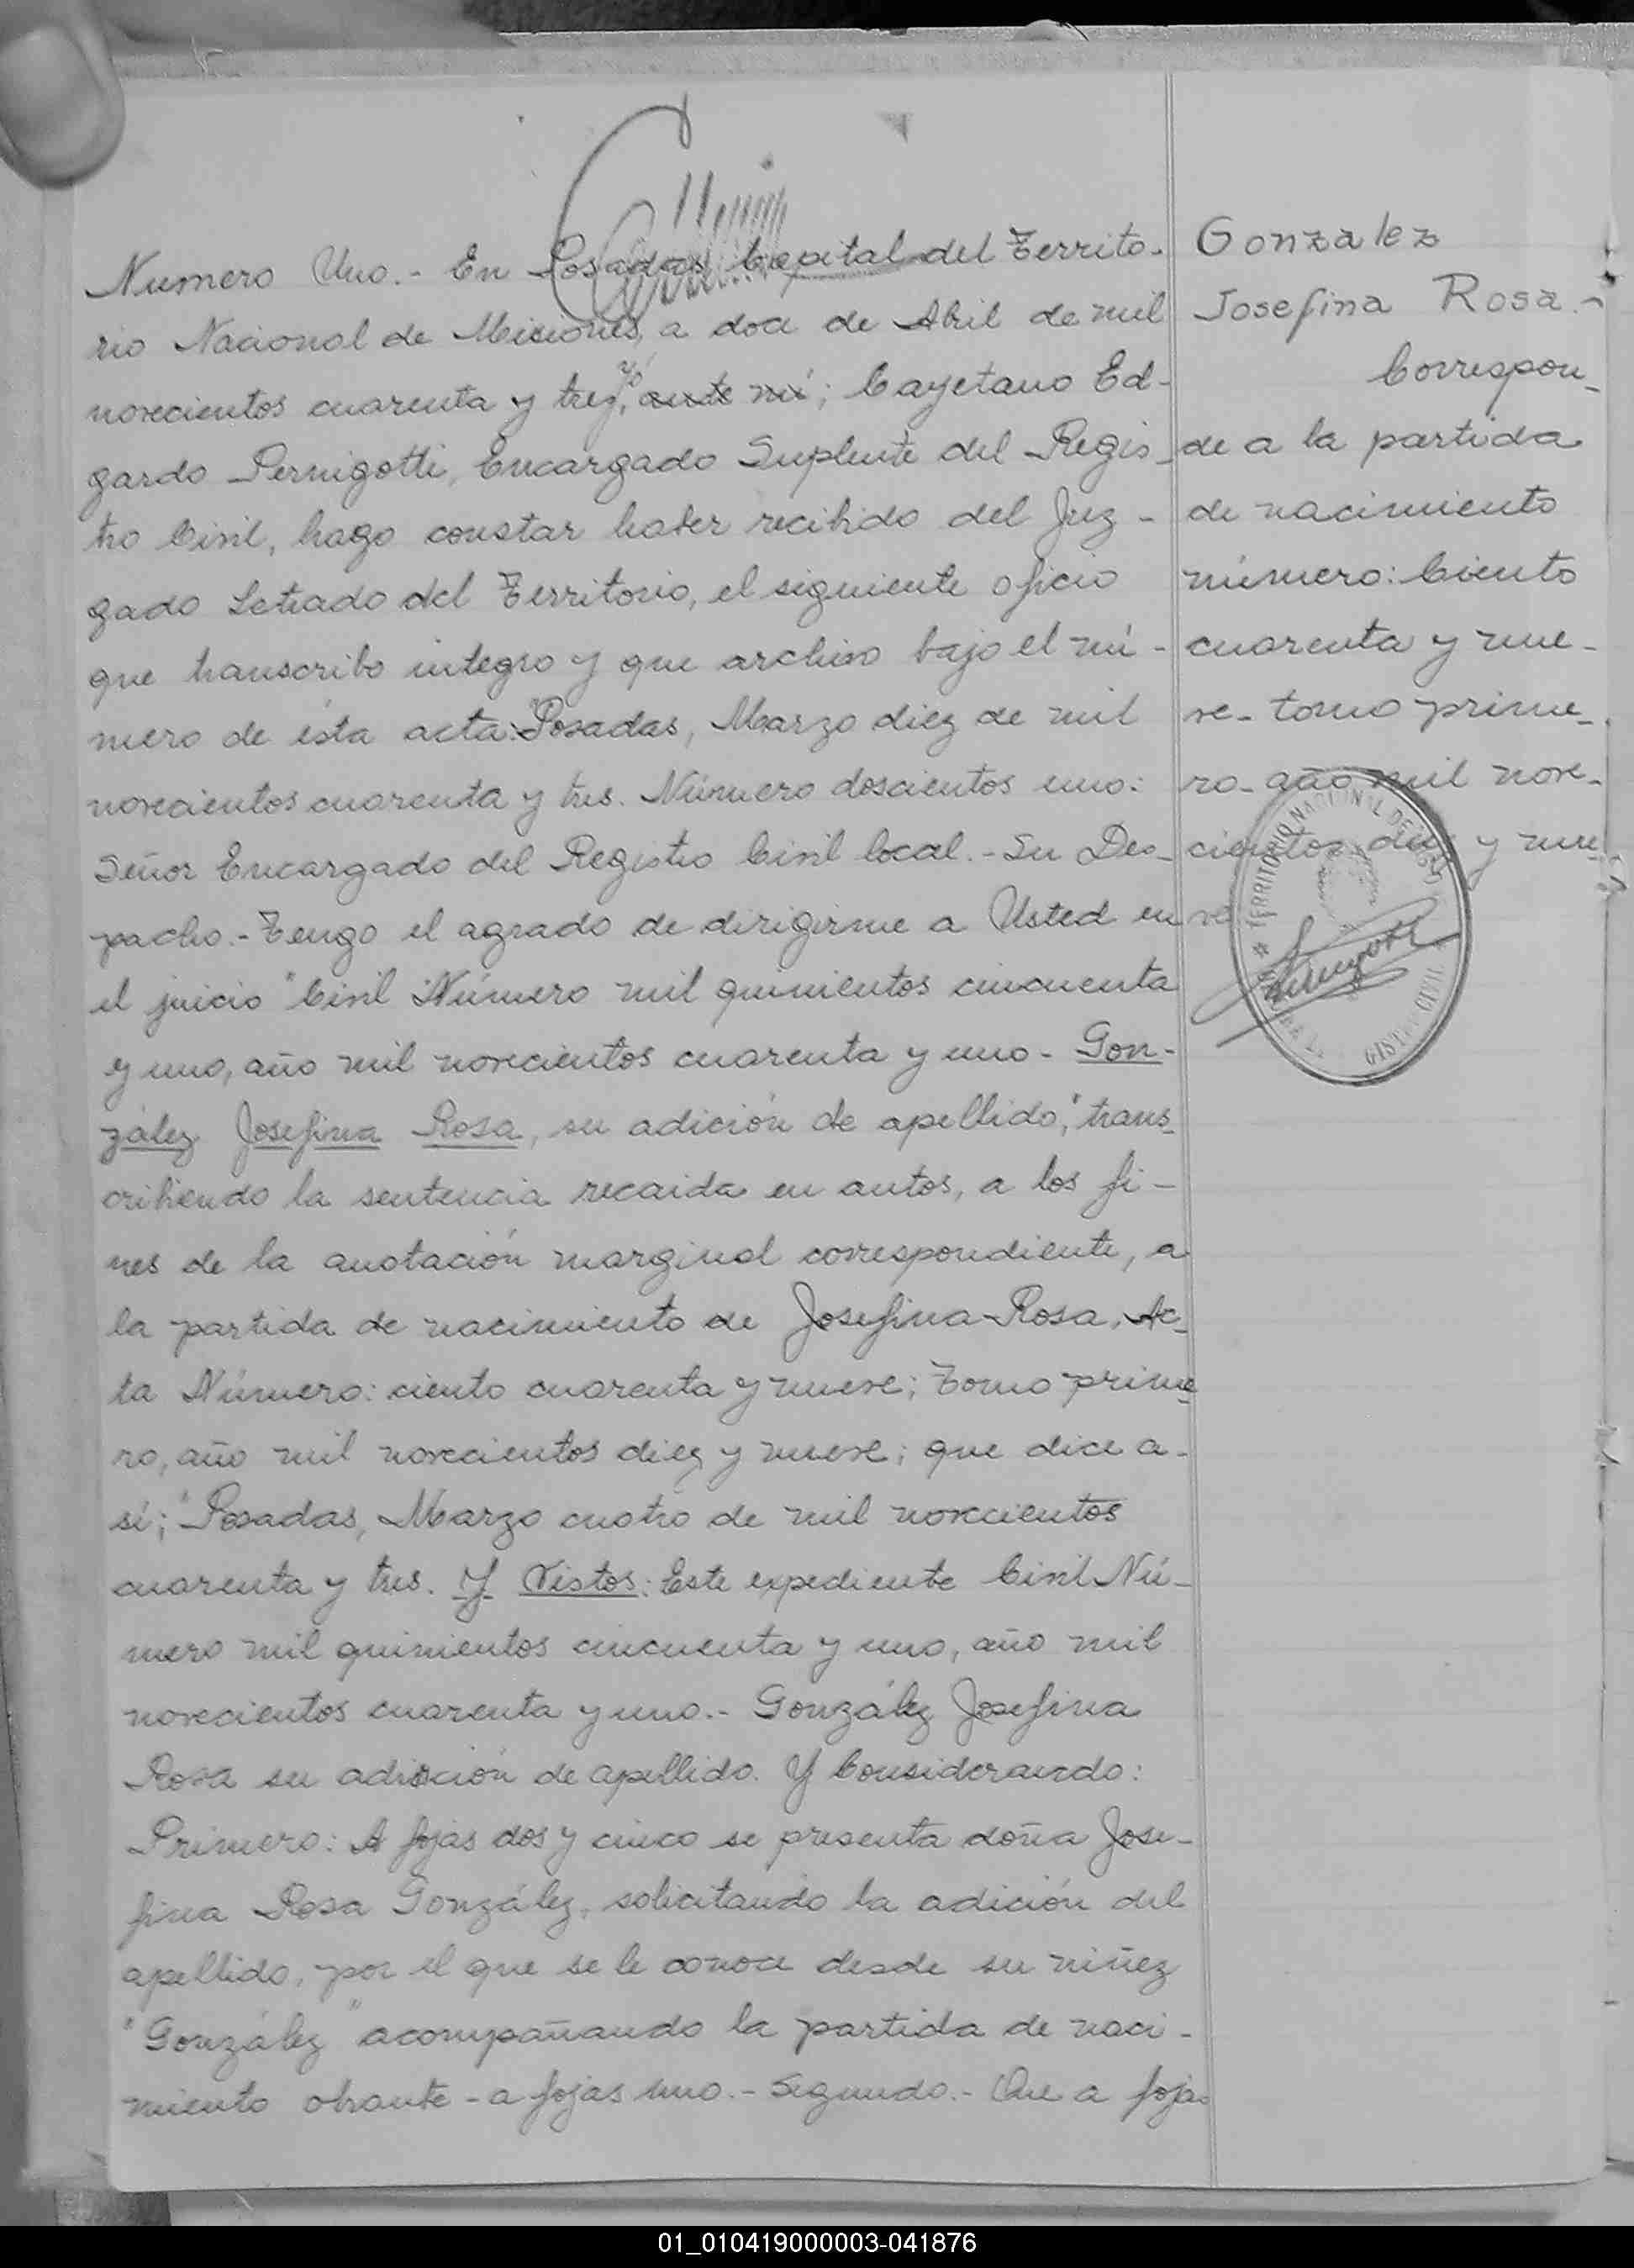 Numero Uno.- En Posadas Capital del Territo-
rio Nacional de Misiones, a doce de Abril de mil
novecientos cuarenta y tres, yó ante mí; Cayetano Ed-
gardo Pernigotti, Encargado Suplente del Regis-
tro Civil, hago constar haber recibido del Juz-
gado Letrado del Territorio, el siguiente oficio
que transcribo integro y que archivo bajo el nú-
mero de ésta acta: "Posadas, Marzo diez de mil
novecientos cuarenta y tres. Número doscientos uno:
Señor Encargado del Registro Civil local.- Su Des-
pacho.- Tengo el agrado de dirigirme a Usted en
el juicio "Civil Número mil quinientos cincuenta
y uno, año mil novecientos cuarenta y uno - Gon-
zález Josefina Rosa, su adición de apellido," trans-
cribiendo la sentencia recaida en autos, a los fi-
nes de la anotación marginal correspondiente, a
la partida de nacimiento de Josefina Rosa, Ac-
ta Número: ciento cuarenta y nueve; Tomo prime-
ro, año mil novecientos diez y nueve; que dice a-
sí; "Posadas, Marzo cuatro de mil novecientos
cuarenta y tres. Y Vistos: Este expediente Civil Nú-
mero mil quinientos cincuenta y uno, año mil
novecientos cuarenta y uno.- González Josefina
Rosa su adición de apellido. Y Considerando:
Primero: A fojas dos y cinco se presenta doña Jose-
fina Rosa González, solicitando la adición del
apellido, por el que se le conoce desde su niñez
"González" acompañando la partida de naci-
miento obrante - a fojas uno.- Segundo.- Que a fojas
Gonzalez
Josefina Rosa.-
Correspon-
de a la partida
de nacimiento
número: Ciento
cuarenta y nue-
ve- tomo prime-
ro- año mil nove-
cientos diez y nue-
ve
TERRITORIO NACIONAL DE
01_010419000003-041876